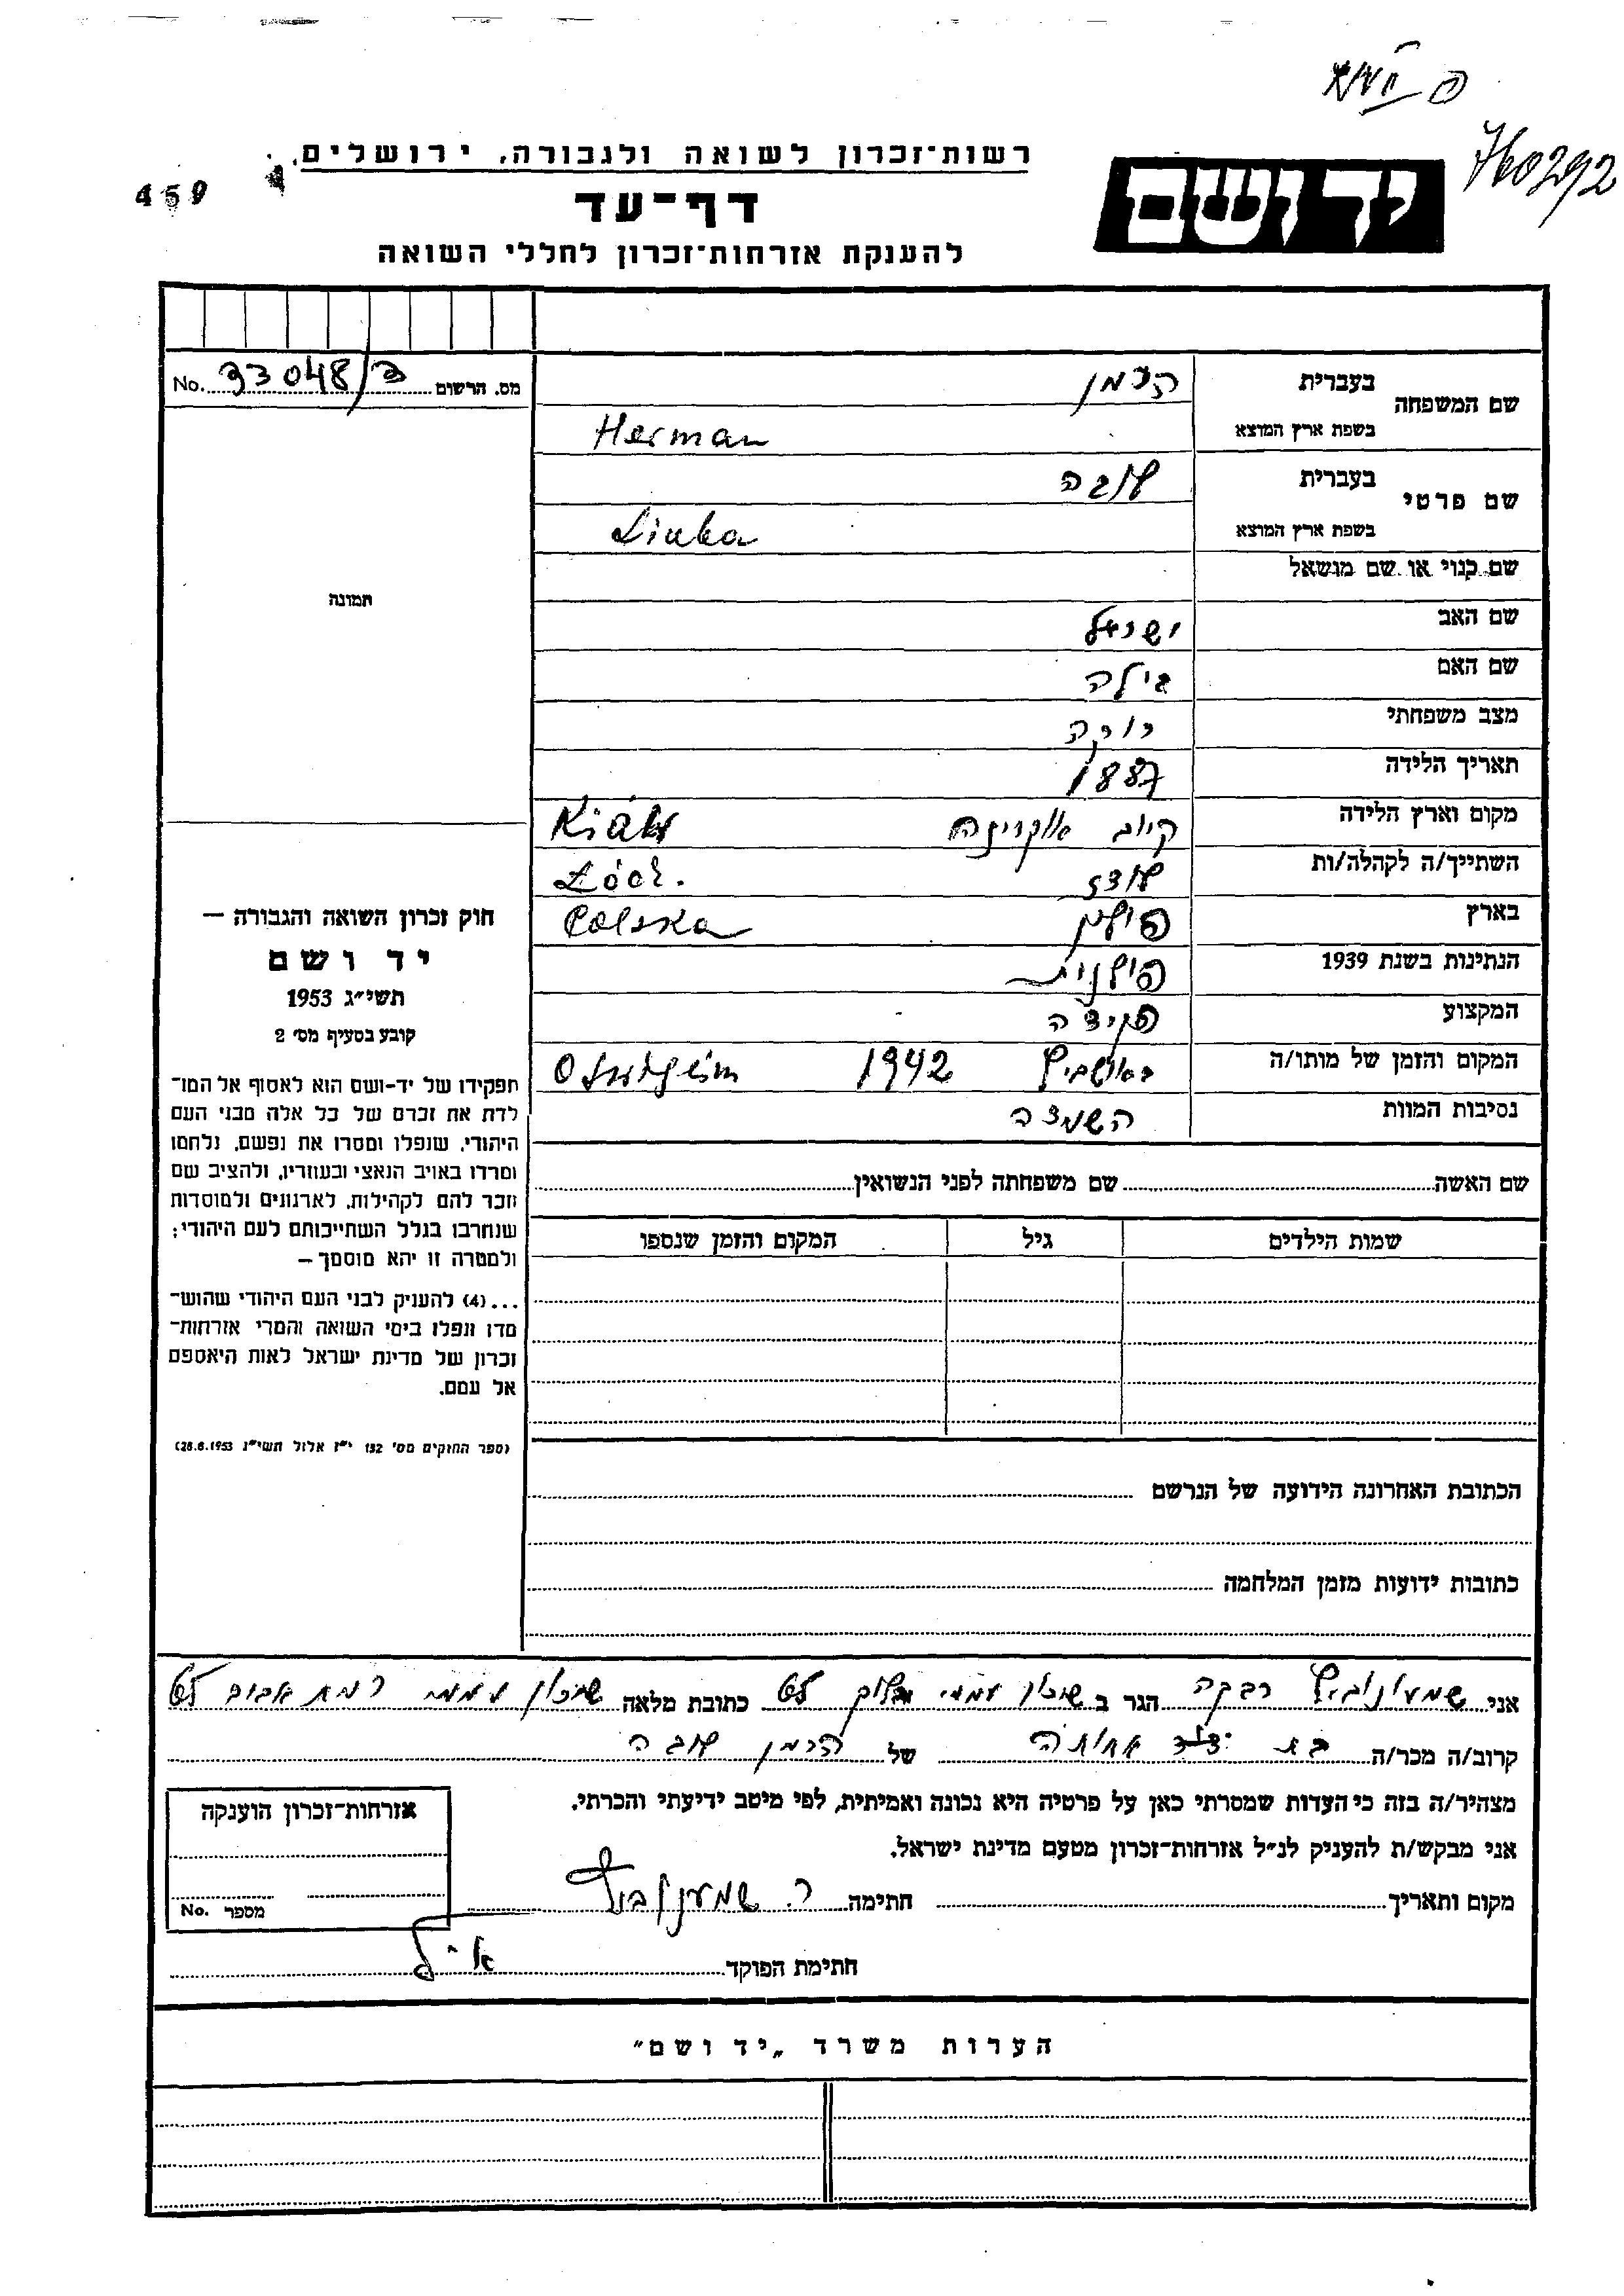 760292
רשות־זכרון לשואה ולגבורה, ירושלים.
459
יד ושם
דף־עד
להענקת אזרחות־זכרון לחללי השואה
שם המשפחה
בעברית הרמן
בשפת ארץ המוצא Herman
מס. הרשום 33048/ No.
שם פרטי
בעברית לובה
בשפת ארץ המוצא Liuba
שם כנוי או שם מושאל
תמונה
שם האב ישראל
שם האם גילה
מצב משפחתי רווקה
תאריך הלידה 1887
מקום וארץ הלידה קיוב אוקרינה
השתייך/ה לקהלה/ות לודז Łódź.
בארץ פולין Polska
הנתינות בשנת 1939 פולנית
המקצוע פקידה
המקום והזמן של מותו/ה באושביץ 1942
נסיבות המוות השמדה
חוק זכרון השואה והגבורה —
יד ושם
תשי״ג 1953
קובע בסעיף מס׳ 2
תפקידו של יד-ושם הוא לאסוף אל המו־
לדת את זכרם של כל אלה מבני העם
היהודי, שנפלו ומסרו את נפשם, נלחמו
ומרדו באויב הנאצי ובעוזריו, ולהציב שם
וזכר להם לקהילות, לארגונים ולמוסדות
שנחרבו בגלל השתייכותם לעם היהודי;
ולמטרה זו יהא מוסמך —
...(4) להעניק לבני העם היהודי שהוש־
מדו ונפלו בימי השואה והמרי אזרחות־
זכרון של מדינת ישראל לאות היאספם
אל עמם.
(ספר החוקים מס׳ 132 י״ז אלול תשי״ג 28.8.1953)
שם האשה שם משפחתה לפני הנשואין
שמות הילדים גיל המקום והזמן שנספו
הכתובת האחרונה הידועה של הנרשם
כתובות ידועות מזמן המלחמה
אני שמעונוביץ רבקה הגר ב שיכון עממי בלוק כתובת מלאה שיכון עממי רמת אביב
קרוב/ה מכר/ה בת אחותה של הרמן לובה
מצהיר/ה בזה כי העדות שמסרתי כאן על פרטיה היא נכונה ואמיתית, לפי מיטב ידיעתי והכרתי.
אני מבקש/ת להעניק לנ״ל אזרחות־זכרון מטעם מדינת ישראל.
מקום ותאריך חתימה ר. שמעונוביץ
אזרחות־זכרון הוענקה
מספר No.
חתימת הפוקד
הערות משרד „יד ושם״